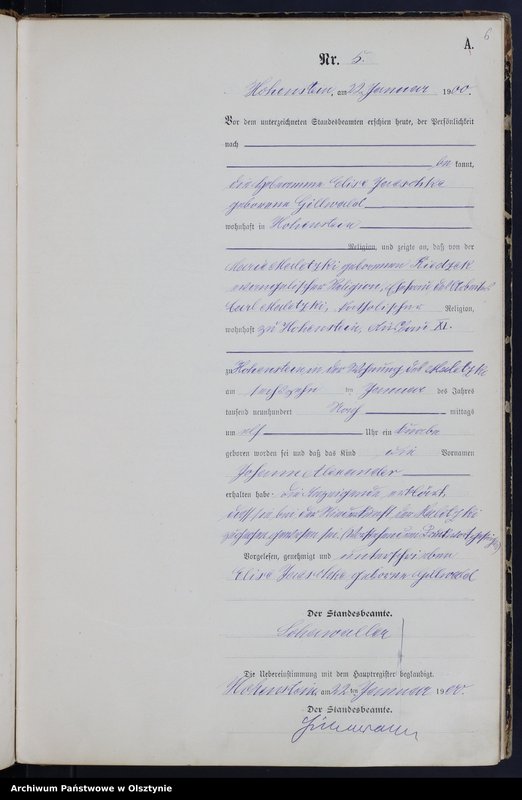 6
A.
Nr. 5.
Hohenstein, am 22. Januar 1900.
Vor dem unterzeichneten Standesbeamten erschien heute, der Persönlichkeit
nach
bekannt,
die Hebeamme Elise Jaeschke
geborene Gillwald
wohnhaft in Hohenstein
Religion, und zeigte an, daß von der
Marie Maletzki geborenen
evangelischer Religion, Ehefrau des
Carl Maletzki, katholischer Religion,
wohnhaft zu Hohenstein, XI.
zu Hohenstein in der Wohnung des Maletzki
am sechszehn ten Januar des Jahres
tausend neunhundert Nach mittags
um elf Uhr ein Knabe
geboren worden sei und daß das Kind die Vornamen
Johann Alexander
erhalten habe. Die Anzeigende erklärt,
daß sie bei der Niederkunft der Maletzki
zugegen gewesen sei.
Vorgelesen, genehmigt und unterschrieben
Elise Jaeschke geborene Gillwald
Der Standesbeamte.
Die Uebereinstimmung mit dem Hauptregister beglaubigt.
Hohenstein, am 22 ten Januar 1900.
Der Standesbeamte.
Archiwum Państwowe w Olsztynie